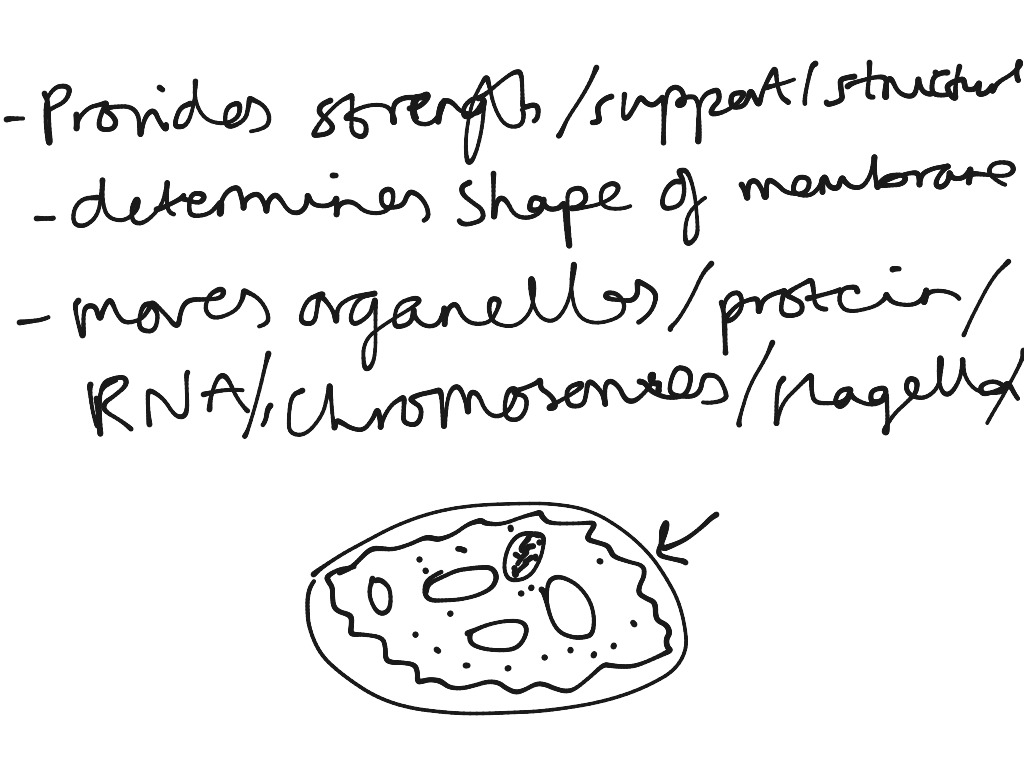 - Provides strength/support/structure
- determines shape of membrane
- moves organelles/protein/
RNA/chromosomes/flagella/